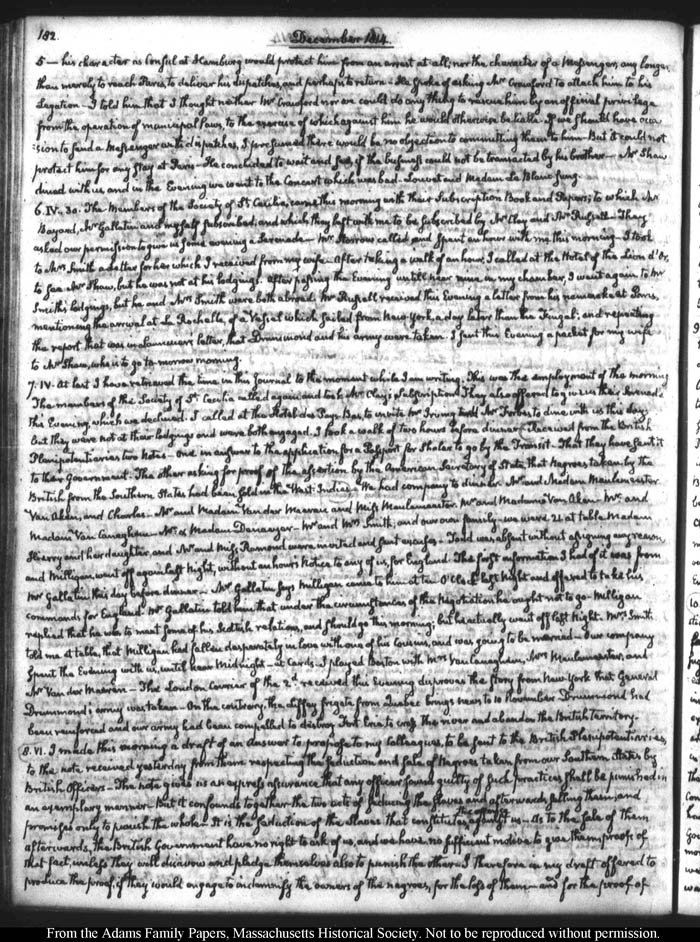 182.
December 1814.
5 — his character as Consul at Hamburg would protect him from an arrest at all; nor the character of a Messenger, any longer
than merely to reach Paris, to deliver his dispatches, and perhaps to return — He spoke of asking Mr Crawford to attach him to his
Legation — I told him that I thought neither Mr Crawford nor we could do any thing to rescue him by an official privilege
from the operation of municipal laws, to the exercise of which against him he would otherwise be liable. If we should have occa-
:sion to send a Messenger with dispatches, I presumed there would be no objection to committing them to him — But I could not
protect him for any stay at Paris — He concluded to wait and see, if the business could not be transacted by his brother — Mr Shaw
dined with us, and in the Evening we went to the Concert which was bad — Louvet and Madam Le Blanc sung.
6. IV. 30. The Members of the Society of St. Cecilia, came this morning with their Subscription Book and Papers; to which Mr
Bayard, Mr Gallatin and myself subscribed; and which they left with me to be subscribed by Mr Clay and Mr Russell. They
asked our permission to give us some evening a Serenade — Mr Storrow called and spent an hour with me this morning — I took
to Mrs Smith a letter for her which I received from my wife — After taking a walk of an hour, I called at the Hotel of the Lion d'Or,
to see Mr Shaw, but he was not at his lodgings. After passing the Evening until near nine in my chamber, I went again to Mr
Smith's lodgings, but he and Mrs Smith were both abroad. Mr Russell received this Evening a letter from his namesake at Paris,
mentioning the arrival at La Rochelle, of a Vessel which sailed from New-York, a day later than the Fingal; and repeating
the report that was in letter, that Drummond and his army were taken. I sent this Evening a packet for my wife
to Mr Shaw, who is to go to-morrow morning.
7. IV. At last I have retrieved the time in this Journal to the moment while I am writing. This was the employment of the morning
The members of the Society of St. Cecilia called again and took Mr Clay's subscription. They also offered to give us their Serenade
this Evening, which we declined. I called at the Hotel des Pays Bas, to invite Mr Irving and Mr Forbes to dine with us this day,
but they were not at their lodgings and were both engaged. I took a walk of two hours before dinner — Received from the British
Plenipotentiaries two Notes — One in answer to the application for a Passport for Shaler to go by the Transit — That they have sent it
to their Government. The other asking for proof of the assertion by the American Secretary of State, that Negroes taken by the
British from the Southern States had been sold in the West-Indies. We had company to dinner. Mr and Madam Meulemeester.
Van Aken, and Charles — Mr and Madam Van der Meersch, and Miss Meulemeester. Mr and Madame Van Aken — Mr and
Madam Van Canaghem — Mr & Madam — Mr and Mrs Smith, and our own family — we were 22 at table. Madam
and her daughter, and Mr and Miss were invited and sent excuses — Todd was absent without assigning any reason,
and Milligan, went off again last Night, without an hours Notice to any of us, for England. The first information I had of it was from
Mr Gallatin this day before dinner — Mr Gallatin says Milligan came to him at ten O'Clock last Night and offered to take his
commands for England. Mr Gallatin told him, that under the circumstances of the Negotiation he ought not to go — Milligan
replied that he was to meet some of his Scotish relations, and should go this morning; but he actually went off last Night. Mrs Smith
told me at table, that Milligan had fallen desperately in love with one of his Cousins, and was going to be married — Our company
spent the Evening with us, until near Midnight — at Cards. I played Boston with Mrs Van Canaghem, Mrs Meulemeester, and
Mr Van der Meersch — The London Courier of the 2d. received this Evening disproves the story from New York that General
Drummond's army was taken — On the contrary, the Frigate from Quebec brings news to 10 November. Drummond had
been reinforced and our army had been compelled to destroy Fort Erie, to cross the river and abandon the British territory.
8. VI. I made this morning a draft of an answer to propose to my Colleagues, to be sent to the British Plenipotentiaries,
to the note received yesterday from them respecting the seduction and sale of Negroes taken from our Southern States by
British Officers — The note gives us an express assurance that any officer found guilty of such practices shall be punished in
an exemplary manner — But it confounds together the two acts of seducing the slaves and afterwards selling them, and
promises only to punish the whole — It is the seduction of the slaves that constitutes the against us — As to the sale of them
afterwards, the British Government have no right to ask of us, and we have no sufficient motive to give them proofs of
that fact, unless they will disavow and pledge themselves also to punish the other — I therefore in my draft offered to
produce the proof, if they would engage to indemnify the owners of the negroes, for the loss of them — and for the proof of
From the Adams Family Papers, Massachusetts Historical Society. Not to be reproduced without permission.